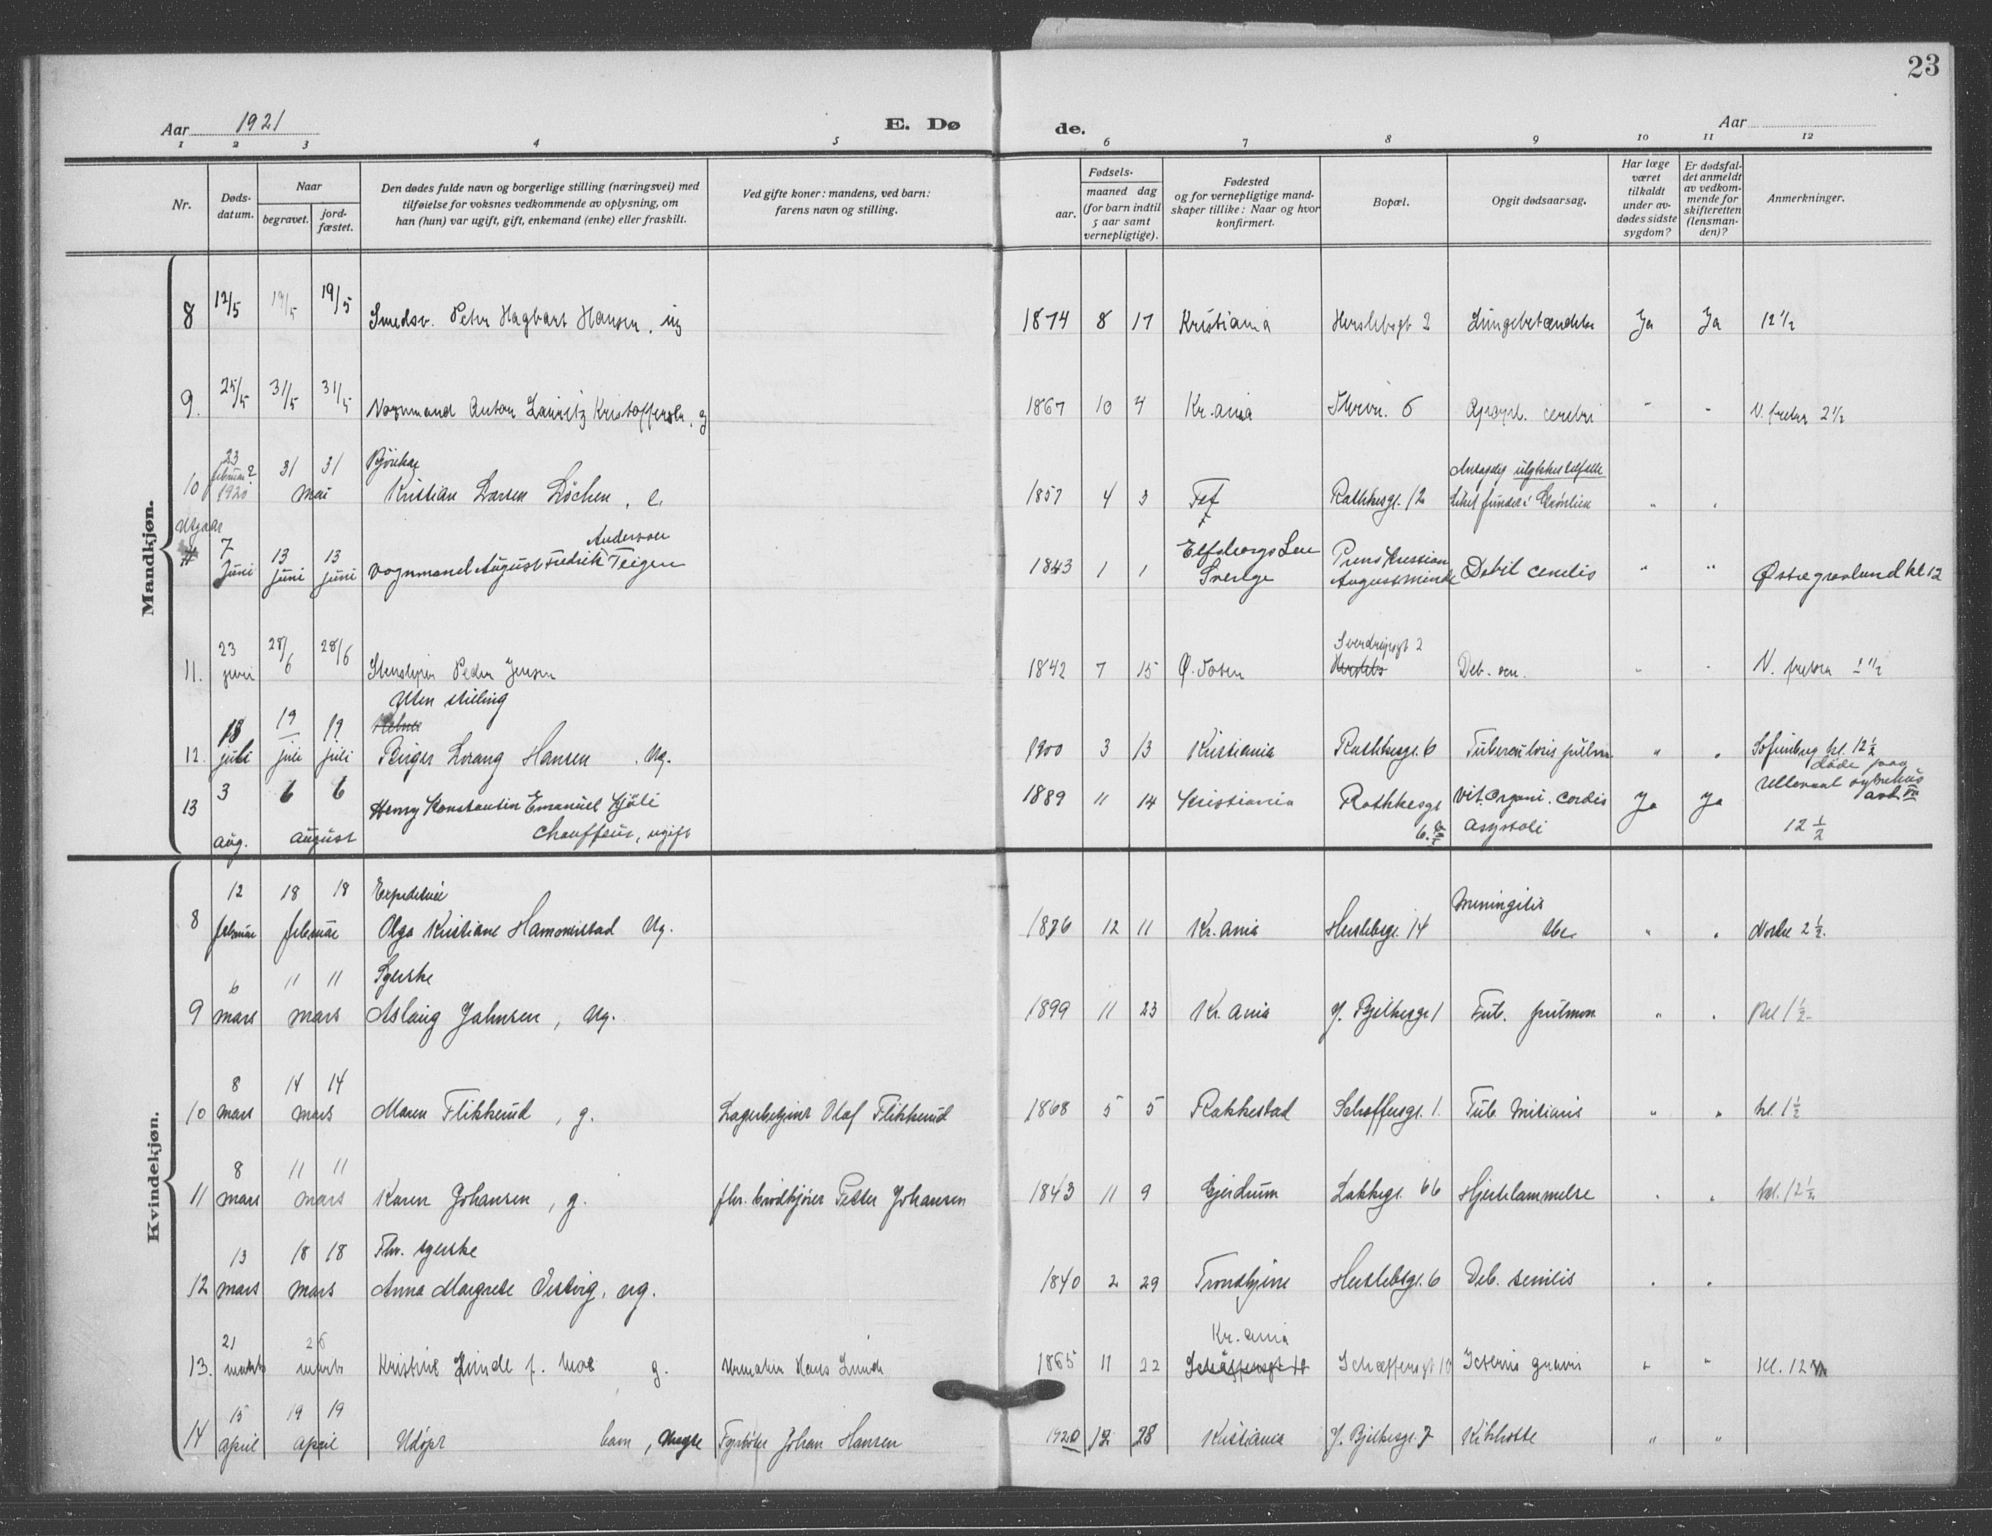 23
Aar 1921
E. Dø de.
Aar
1 2 3 4 5 6 7 8 9 10 11 12
Nr.
Døds-
datum.
Naar
begravet.
jord-
fæstet.
Den dødes fulde navn og borgerlige stilling (næringsvei) med
tilføielse for voksnes vedkommende av oplysning, om
han (hun) var ugift, gift, enkemand (enke) eller fraskilt.
Ved gifte koner: mandens, ved barn:
farens navn og stilling.
Fødsels-
aar.
maaned dag
(for barn indtil
5 aar samt
vernepligtige).
Fødested
og for vernepligtige mand-
skaper tillike: Naar og hvor
konfirmert.
Bopæl.
Opgit dødsaarsag.
Har læge
været
tilkaldt
under av-
dødes sidste
sygdom?
Er dødsfal-
det anmeldt
av vedkom-
mende for
skifteretten
(lensman-
den)?
Anmerkninger.
Mandkjøn.
8 12/5 19/5 19/5 Smedsv. Peter Hagbart Hansen, ug 1874 8 17 Kristiania Herslebsgt 2 Lungebetændelse Ja Ja 12 1/2
9. 25/5 31/5 31/5 Vognmand Anton Lauritz Kristoffersen, g 1867 10 4 Kr.ania 6 Apopl. cerebri " " V. frelser 2 1/2
23 31 31
10 februar? 1920 mai Kristian Larsen Løchen, e. 1857 4 3 Rathkesgt. 12 Antagelig ulykkestilfælde
Liket fundet i Grønlien " "
Utgaar
7 13 13 Andersen
Juni juni juni Vognmand August Fredrik Teigen 1843 1 1 Elfsborgs Len
Sverige Prins Kristian
Augusts minde Debil senilis " " Østre gravlund kl 12
11. 23 juni 28/6 28/6 Peder Jensen 1842 7 15 Ø. Toten Sverdrupsgt 2
Deb. sen. " " V. frelser 1 1/2
Uten stilling
18 19 19
12. juli juli juli Birger Lorang Hansen. Ug. 1900 3 13 Kristiania Rathkesgt. 6 Tuberculosis pulm " " Sofienberg kl. 12 1/2
13 3 6 6 Henry Konstantin Emanuel Kjøli 1889 11 14 Kristiania Rathkesgt
6. Vit. organi. cordis
asystoli Ja Ja døde paa
Ullevaal sykehus
12 1/2
aug. august Chauffeur, ugift
Kvindekjøn.
12 18 18 Expeditrice
8 februar februar Olga Kristiane Hammerstad Ug. 12 11 Kr.ania Herslebsgt. 14 Meningitis
tbc. " " Nordre 2 1/2.
6 11 11 Syerske
9 mars mars Aslaug Jahnsen, ug. 1899 11 23 Kr.ania J. Bjelkesgt 1 Tub. pulmon " " Kl 1 1/2
8 14 14
10 mars mars Maren Flikkerud, g. Lagerbetjent Olaf Flikkerud 1868 5 5 Rakkestad Schæffersgt. 1. Tub. miliaris " " kl. 1 1/2
8 11 11
11 mars mars Karen Johansen, g. fhv. brødkjører Petter Johansen 1843 11 9 Gjerdrum Lakkegt. 66 Hjertelammelse " " kl. 12 1/2
13 18 18 Fhv. syerske
12 mars mars Anna Margrete Vestvig, ug. 1840 2 29 Trondhjem Herslebsgt. 6 Deb. senilis " "
21 26
13. marts marts Kristine Linde f. Moe g. Urmaker Hans Linde 1865 11 22 Kr.ania
Schæffersgt 10 Icterus gravis " " Kl. 12
15 19 19
14 april april Udøpt barn, Fyrbøter Johan Hansen 1920 12 28 Kristiania J. Bjelkesgt. 7 Kikhoste " "